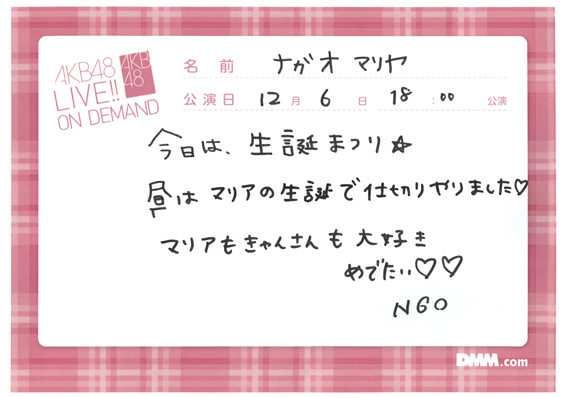 AKB48
LIVE!!
ON DEMAND
AKB
48
名前 ナガオ マリヤ
公演日 12月 6日 18:00 公演
今日は、生誕まつり☆
昼は マリアの生誕で仕切りやりました♡
マリアもきゃんさんも大好き
めでたい♡♡
NGO
DMM.com